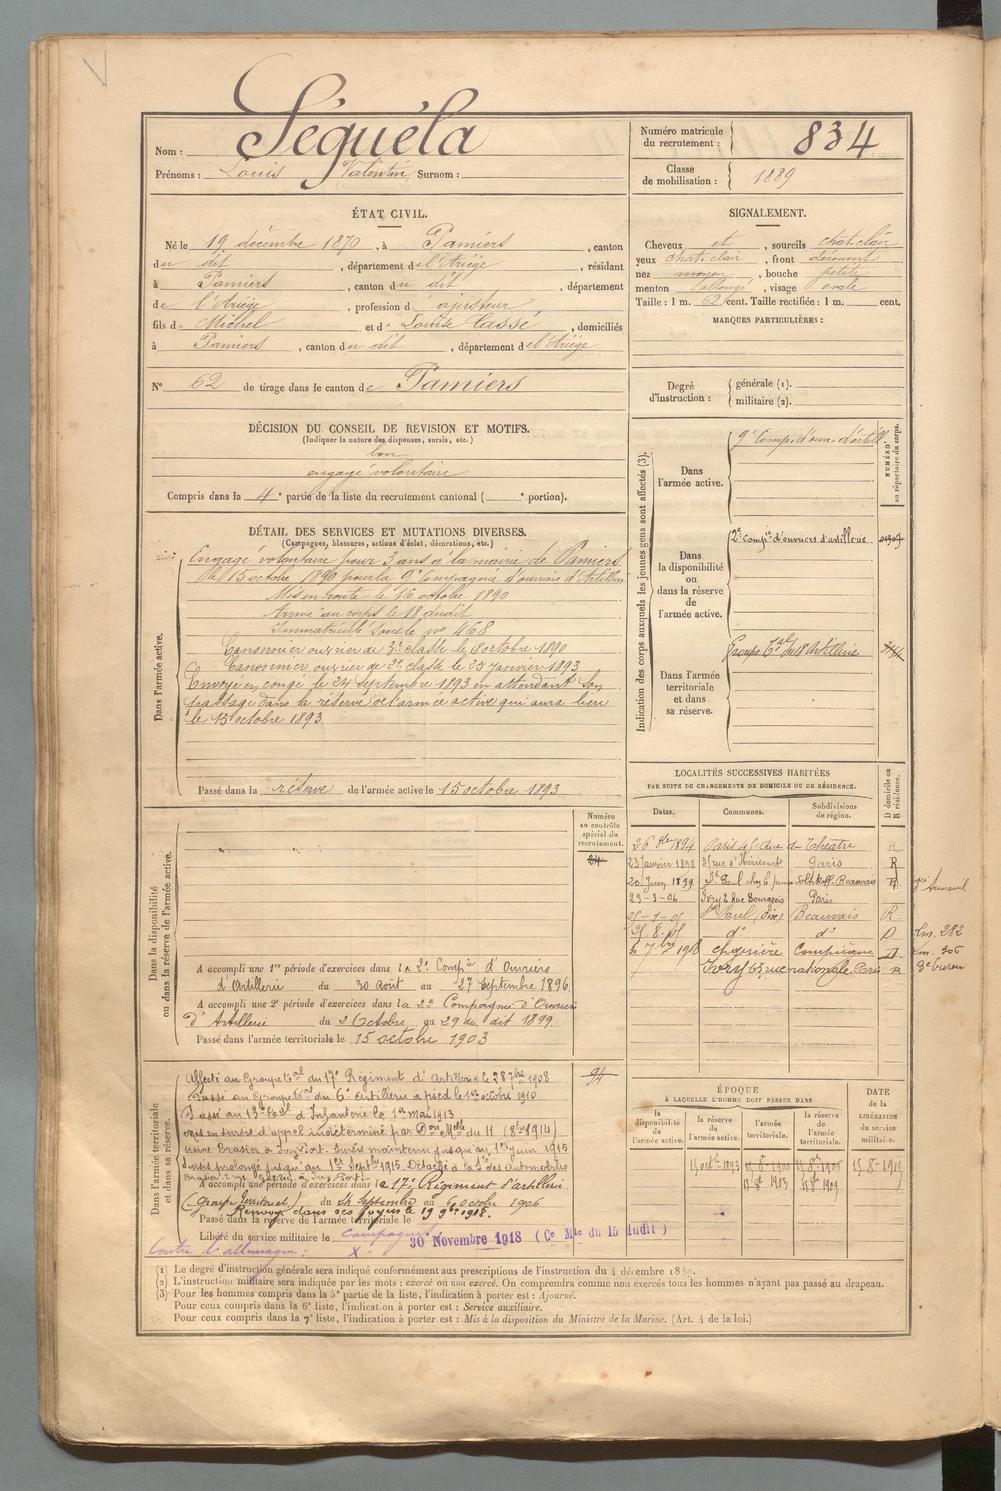 Nom : Séguéla
Prénoms : Louis Valentin Surnom :
Numéro matricule du recrutement : 834
Classe de mobilisation : 1889
ÉTAT CIVIL.
Né le 19 décembre 1870, à Pamiers, canton
du dit, département de l'Ariège, résidant
à Pamiers, canton du dit, département
de l'Ariège, profession d'ajusteur
fils de Michel et de Louise Cassé, domiciliés
à Pamiers, canton du dit, département de l'Ariège
N° 62 de tirage dans le canton de Pamiers
SIGNALEMENT.
Cheveux et, sourcils chat. clair
yeux chat. clair, front découvert
nez moyen, bouche petite
menton allongé, visage ovale
Taille : 1 m. 62 cent. Taille rectifiée : 1 m. cent.
MARQUES PARTICULIÈRES :
Degré d'instruction : générale (1).
militaire (2).
DÉCISION DU CONSEIL DE REVISION ET MOTIFS.
(Indiquer la nature des dispenses, sursis, etc.)
bon
engagé volontaire
Compris dans la 4e partie de la liste du recrutement cantonal ( e portion).
Indication des corps auxquels les jeunes gens sont affectés (3).
NUMÉRO au répertoire du corps.
Dans l'armée active.
9e Comp. d'ouv. d'artill.
Dans la disponibilité ou dans la réserve de l'armée active.
2e Compie d'ouvriers d'artillerie
Dans l'armée territoriale et dans sa réserve.
Groupe Tal du 18e Artillerie
DÉTAIL DES SERVICES ET MUTATIONS DIVERSES.
(Campagnes, blessures, actions d'éclat, décorations, etc.)
Dans l'armée active.
Engagé volontaire pour 3 ans à la mairie de Pamiers
le 15 octobre 1890 pour la 9e Compagnie d'ouvriers d'Artillerie
Mis en route le 16 octobre 1890
Arrivé au corps le 18 dudit
Immatriculé sous le no 468
Canonnier ouvrier de 3e classe le 18 octobre 1890
Canonnier ouvrier de 2e classe le 25 janvier 1893
Envoyé en congé le 24 septembre 1893 en attendant son
passage dans la réserve de l'armée active qui aura lieu
le 15 octobre 1893
Passé dans la réserve de l'armée active le 15 octobre 1893
LOCALITÉS SUCCESSIVES HABITÉES
PAR SUITE DE CHANGEMENTS DE DOMICILE OU DE RÉSIDENCE.
Dates. Communes. Subdivisions de région. D domicile ou R résidence.
26 8bre 1894 Paris Rue du Théâtre R
23 Janvier 1898 rue d'Héricourt Paris R
20 Juin 1899 St Paul Beauvais
23-3-04 Ivry 2 Rue Bourgeois Paris
St Paul (Oise) Beauvais R
do do D Em. 282
7bre 1910 Compiègne D Em. 306
Ivry 65 rue nationale Paris R 3e bureau
Dans la disponibilité ou dans la réserve de l'armée active.
Numéro au contrôle spécial du recrutement.
A accompli une 1re période d'exercices dans la 2e Compie d'Ouvriers
d'Artillerie du 30 Août au 27 Septembre 1896.
A accompli une 2e période d'exercices dans la 2e Compagnie d'Ouvriers
d'Artillerie du 2 Octobre au 29 du dit 1899.
Passé dans l'armée territoriale le 15 octobre 1903
Dans l'armée territoriale et dans sa réserve.
Affecté au Groupe Tal du 17e Régiment d'Artillerie le 28 7bre 1908
Passé au Groupe Tal du 6e Artillerie à pied le 1er octobre 1910
Passé au 13e Tal d'Infanterie le 1er mai 1913
mis en sursis d'appel indéterminé par Don Melle du 11 (8bre 1914)
usine Brasier à Ivry Port. Sursis maintenu jusqu'au 1er juin 1915
Sursis prolongé jusqu'au 1er Septbre 1915. Détaché à la Sté des Automobiles
A accompli une période d'exercices dans le 17e Régiment d'artillerie.
(Groupe Territorial) du 24 Septembre au 6 Octobre 1906
Renvoyé dans ses foyers le 19 9bre 1918.
Passé dans la réserve de l'armée territoriale le
Libéré du service militaire le 30 Novembre 1918 (Ce Mle du 15 dudit)
Campagnes
Contre l'allemagne : X
ÉPOQUE
À LAQUELLE L'HOMME DOIT PASSER DANS
la disponibilité de l'armée active. la réserve de l'armée active. l'armée territoriale. la réserve de l'armée territoriale.
DATE de la LIBÉRATION du service militaire.
15 octbre 1893
(1) Le degré d'instruction générale sera indiqué conformément aux prescriptions de l'instruction du 4 décembre 1889.
(2) L'instruction militaire sera indiquée par les mots : exercé ou non exercé. On comprendra comme non exercés tous les hommes n'ayant pas passé au drapeau.
(3) Pour les hommes compris dans la 5e partie de la liste, l'indication à porter est : Ajourné.
Pour ceux compris dans la 6e liste, l'indication à porter est : Service auxiliaire.
Pour ceux compris dans la 7e liste, l'indication à porter est : Mis à la disposition du Ministre de la Marine. (Art. 4 de la loi.)